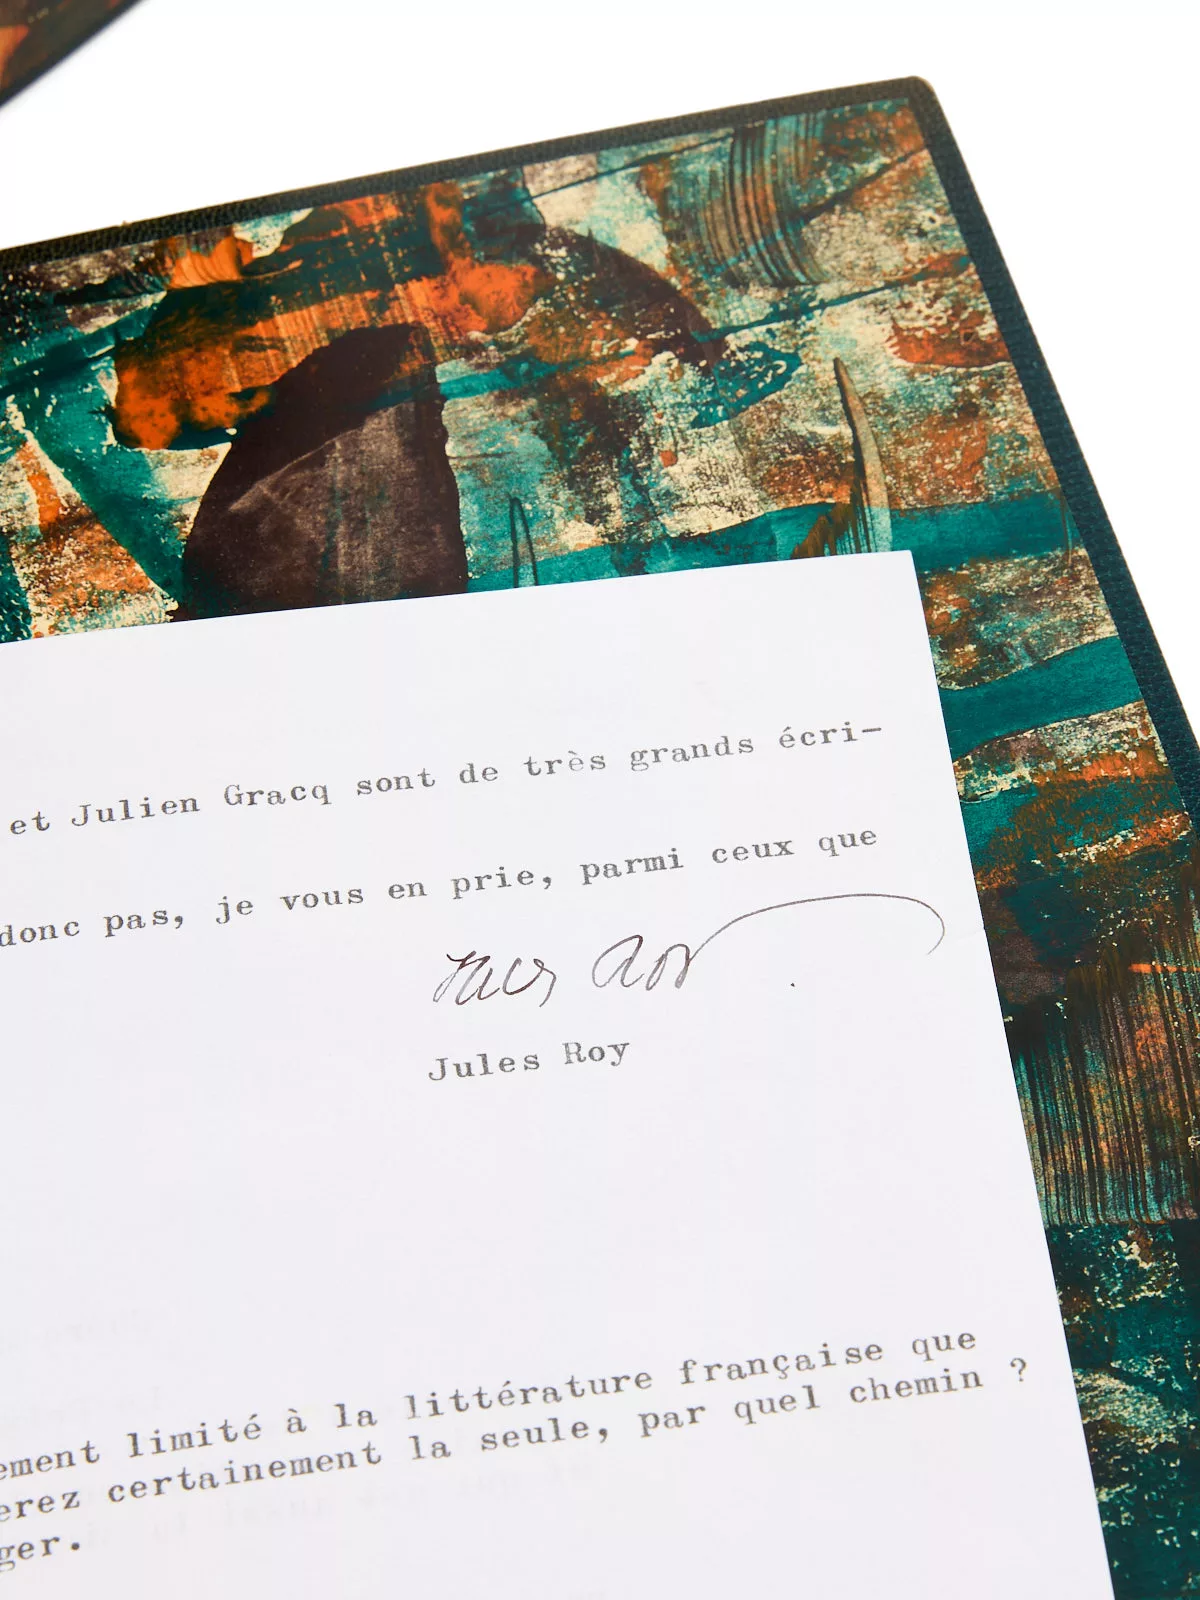 et Julien Gracq sont de très grands écri-
donc pas, je vous en prie, parmi ceux que
Jules Roy
Jules Roy
ement limité à la littérature française que
erez certainement la seule, par quel chemin ?
ger.